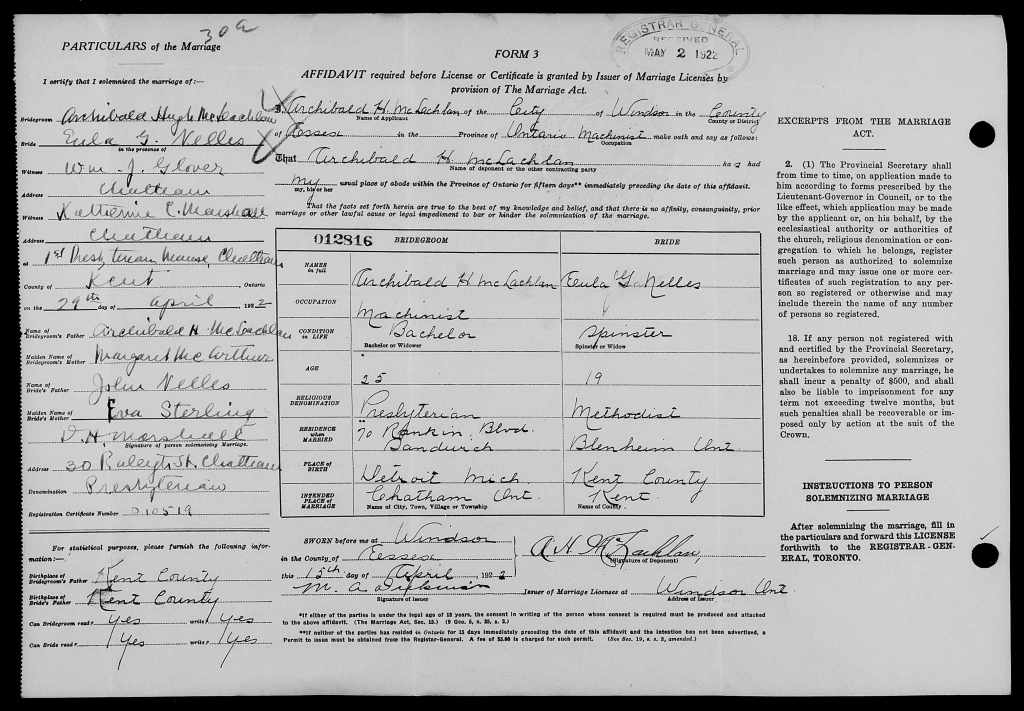 30a
PARTICULARS of the Marriage
I certify that I solemnized the marriage of:—
Bridegroom Archibald Hugh McLachlan
Bride Eula G. Nelles
in the presence of
Witness Wm. J. Glover
Address Chatham
Witness Katherine C. Marshall
Address Chatham
at 1st Presbyterian Manse, Chatham
County of Kent, Ontario
on the 29th day of April 1922
Name of Bridegroom's Father Archibald H. McLachlan
Maiden Name of Bridegroom's Mother Margaret McArthur
Name of Bride's Father John Nelles
Maiden Name of Bride's Mother Eva Sterling
D. H. Marshall
Signature of person solemnizing Marriage.
Address 30 Raleigh St. Chatham
Denomination Presbyterian
Registration Certificate Number 010519
For statistical purposes, please furnish the following information:—
Birthplace of Bridegroom's Father Kent County
Birthplace of Bride's Father Kent County
Can Bridegroom read? Yes write? Yes
Can Bride read? Yes write? Yes
REGISTRAR GENERAL
RECEIVED
MAY 2 1922
FORM 3
AFFIDAVIT required before License or Certificate is granted by Issuer of Marriage Licenses by
provision of The Marriage Act.
I, Archibald H. McLachlan of the City of Windsor in the County
Name of Applicant
County or District
of Essex in the Province of Ontario Machinist make oath and say as follows:
Occupation
That Archibald H McLachlan has had
Name of deponent or the other contracting party
my usual place of abode within the Province of Ontario for fifteen days** immediately preceding the date of this affidavit.
my, his or her
That the facts set forth herein are true to the best of my knowledge and belief, and that there is no affinity, consanguinity, prior
marriage or other lawful cause or legal impediment to bar or hinder the solemnization of the marriage.
012816 BRIDEGROOM BRIDE
NAMES in full Archibald H McLachlan Eula G. Nelles
OCCUPATION Machinist
CONDITION in LIFE Bachelor Spinster
Bachelor or Widower Spinster or Widow
AGE 25 19
RELIGIOUS DENOMINATION Presbyterian Methodist
RESIDENCE when MARRIED 70 Rankin Blvd. Sandwich Blenheim Ont
PLACE OF BIRTH Detroit Mich. Kent County
INTENDED PLACE OF MARRIAGE Chatham Ont. Kent.
Name of City, Town, Village or Township Name of County
SWORN before me at Windsor
in the County of Essex
this 15th day of April 1922
Signature of Issuer
A. H. McLachlan,
(Signature of Deponent)
Issuer of Marriage Licenses at Windsor Ont.
Address of Issuer
*If either of the parties is under the legal age of 18 years, the consent in writing of the person whose consent is required must be produced and attached
to the above affidavit. (The Marriage Act, Sec. 15.) (9 Geo. 5, c. 35, s. 2.)
**If neither of the parties has resided in Ontario for 15 days immediately preceding the date of this affidavit and the intention has not been advertised, a
Permit to issue must be obtained from the Register-General. A fee of $5.00 is charged for such permit. (See Sec. 19, s. s. 3, amended.)
EXCERPTS FROM THE MARRIAGE
ACT.
2. (1) The Provincial Secretary shall
from time to time, on application made to
him according to forms prescribed by the
Lieutenant-Governor in Council, or to the
like effect, which application may be made
by the applicant or, on his behalf, by the
ecclesiastical authority or authorities of
the church, religious denomination or con-
gregation to which he belongs, register
such person as authorized to solemnize
marriage and may issue one or more cer-
tificates of such registration to any per-
son so registered or otherwise and may
include therein the name of any number
of persons so registered.
18. If any person not registered with
and certified by the Provincial Secretary,
as hereinbefore provided, solemnizes or
undertakes to solemnize any marriage, he
shall incur a penalty of $500, and shall
also be liable to imprisonment for any
term not exceeding twelve months, but
such penalties shall be recoverable or im-
posed only by action at the suit of the
Crown.
INSTRUCTIONS TO PERSON
SOLEMNIZING MARRIAGE
After solemnizing the marriage, fill in
the particulars and forward this LICENSE
forthwith to the REGISTRAR-GEN-
ERAL, TORONTO.